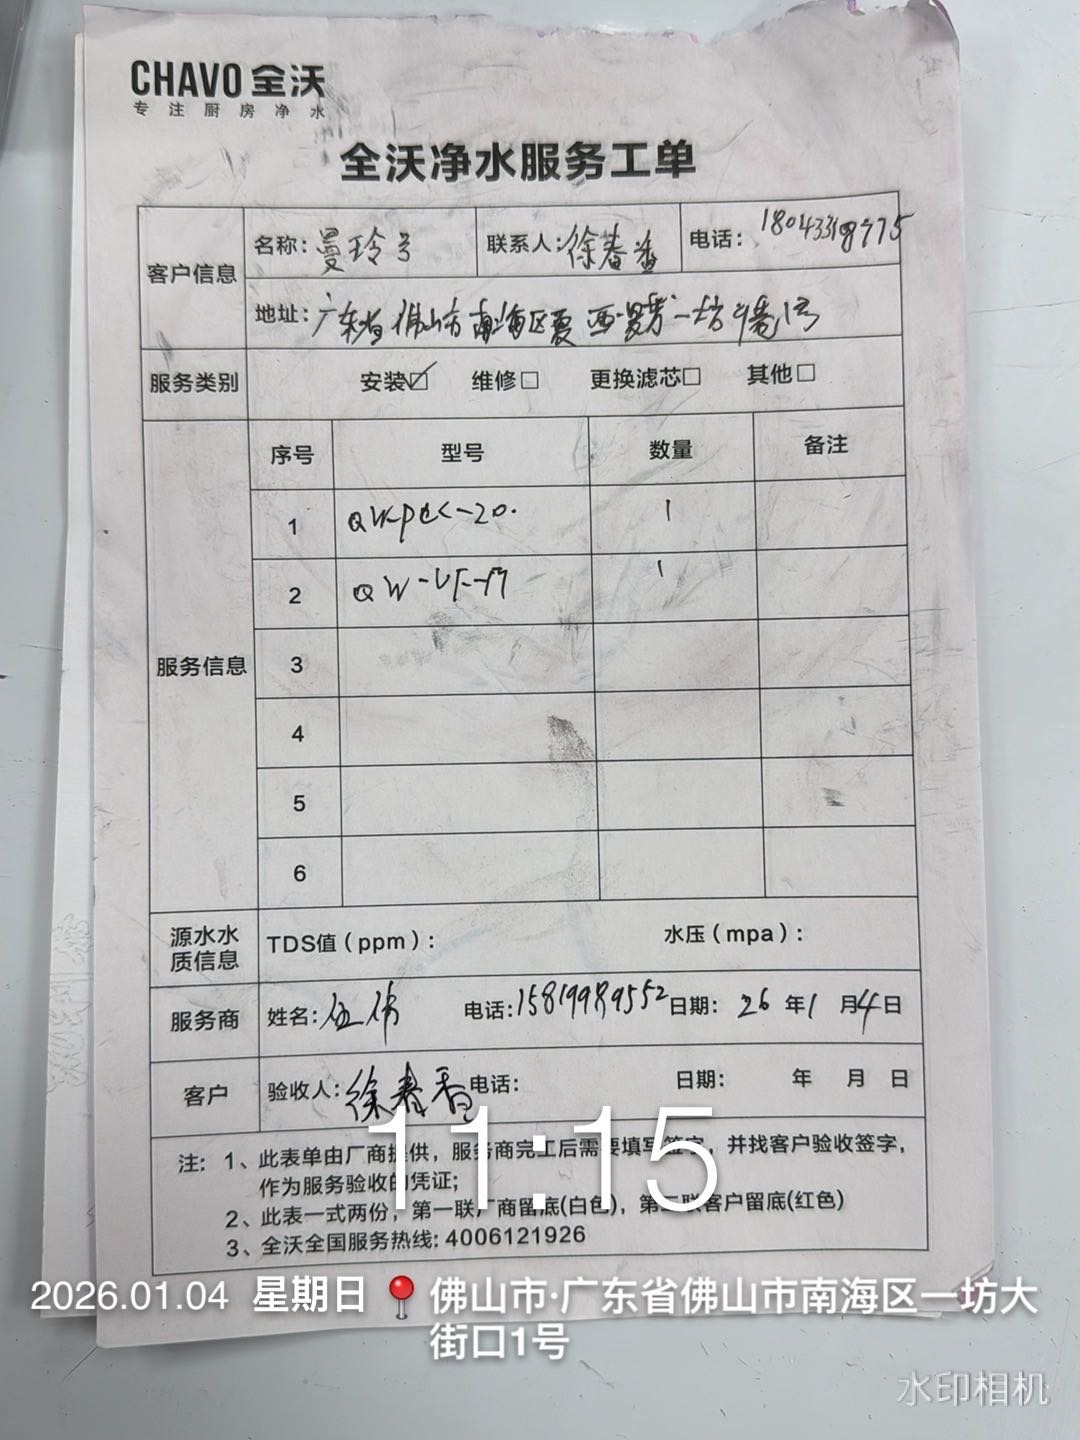 CHAVO 全沃
专注厨房净水
全沃净水服务工单
客户信息
名称：曼玲弓 联系人：徐春香 电话：
地址：广东省佛山市南海区夏西 一坊
服务类别 安装☑ 维修□ 更换滤芯□ 其他□
服务信息
序号 型号 数量 备注
1 -20. 1
2 QW-UF- 1
3
4
5
6
源水水质信息 TDS值（ppm）： 水压（mpa）：
服务商 姓名：伍伟 电话：15819989552 日期：26年1月4日
客户 验收人：徐春香 电话： 日期： 年 月 日
注：1、此表单由厂商提供，服务商完工后需要填写签字，并找客户验收签字，
作为服务验收的凭证；
2、此表一式两份，第一联厂商留底(白色)，第二联客户留底(红色)
3、全沃全国服务热线：4006121926
11:15
2026.01.04 星期日 佛山市·广东省佛山市南海区一坊大
街口1号
水印相机